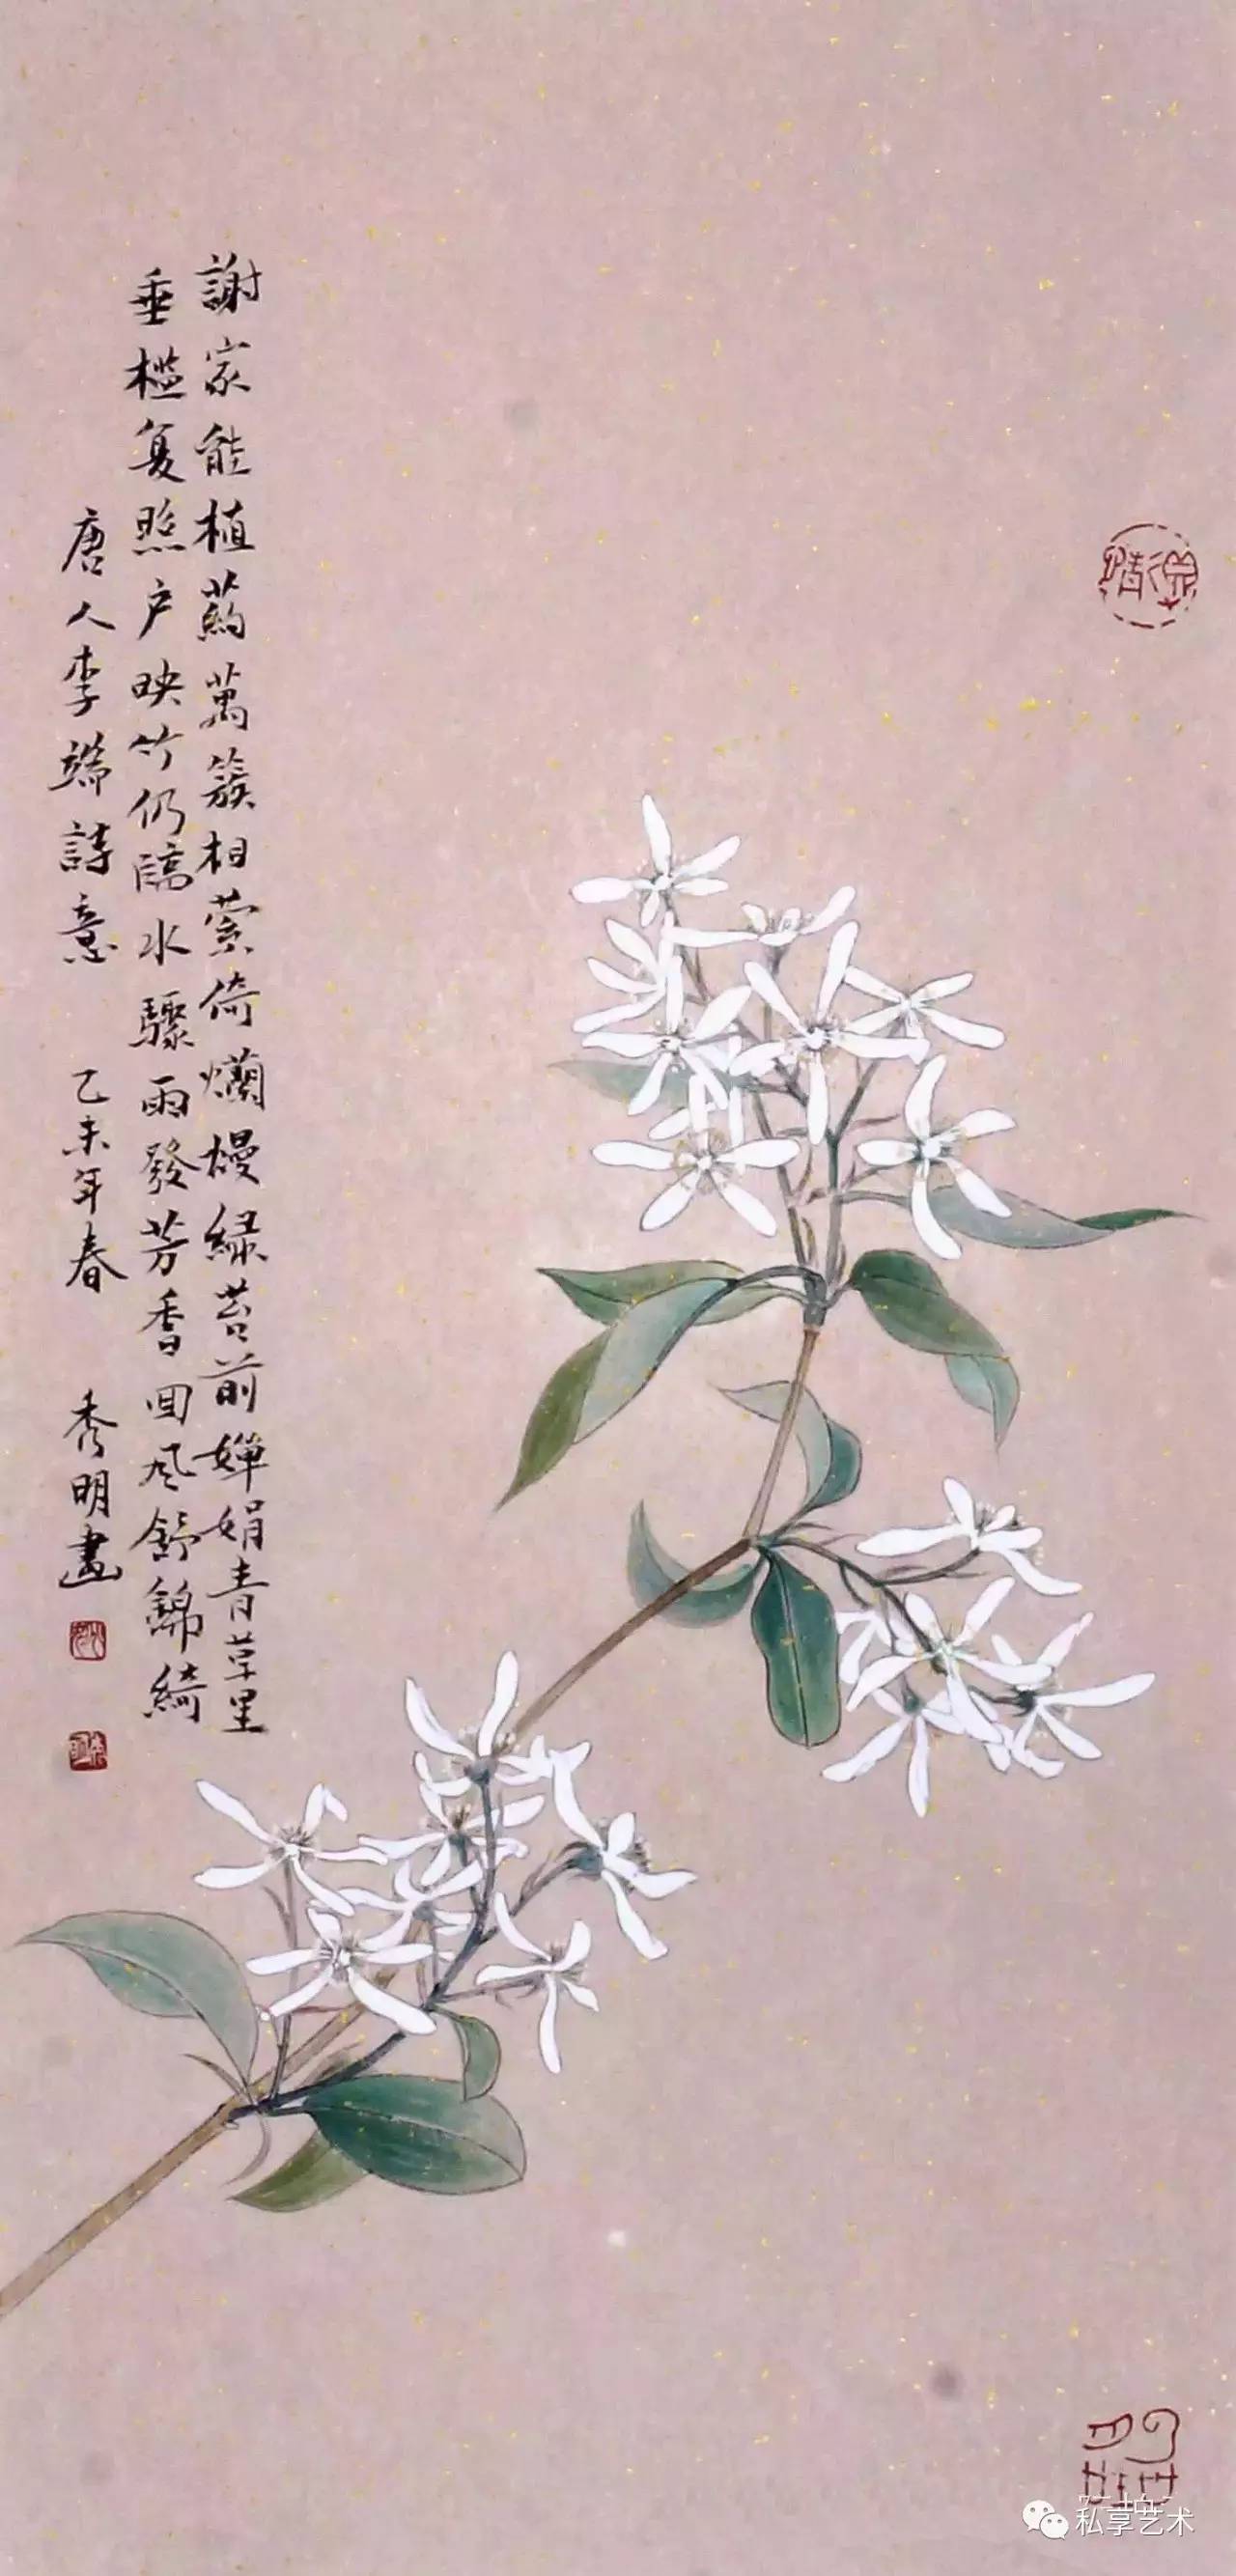 謝家能植药萬簇相萦倚爛槾緑苔前嬋娟青草里
垂槛复照户映竹仍臨水驟雨發芳香回风舒錦綺
唐人李端詩意 乙未年春 秀明畫
私享艺术